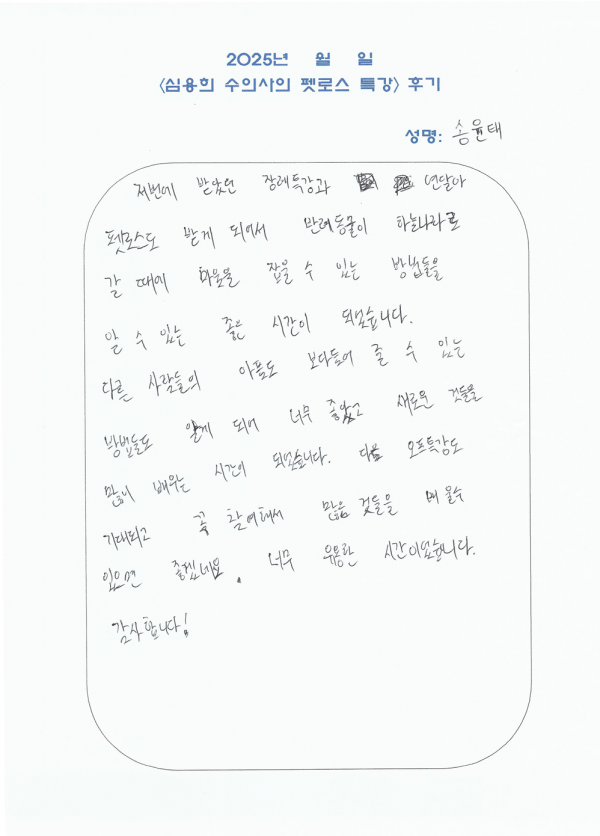 2025년 월 일
<심용희 수의사의 펫로스 특강> 후기
성명: 송윤태
저번에 받았던 장례특강과 연달아
펫로스도 받게 되어서 반려동물이 하늘나라로
갈 때에 마음을 잡을 수 있는 방법들을
알 수 있는 좋은 시간이 되었습니다.
다른 사람들의 아픔도 보다듬어 줄 수 있는
방법들도 알게 되어 너무 좋았고 새로운 것들을
많이 배우는 시간이 되었습니다. 다음 오프특강도
기대되고 꼭 참여해서 많은 것들을 배울수
있으면 좋겠네요. 너무 유용한 시간이었습니다.
감사합니다!